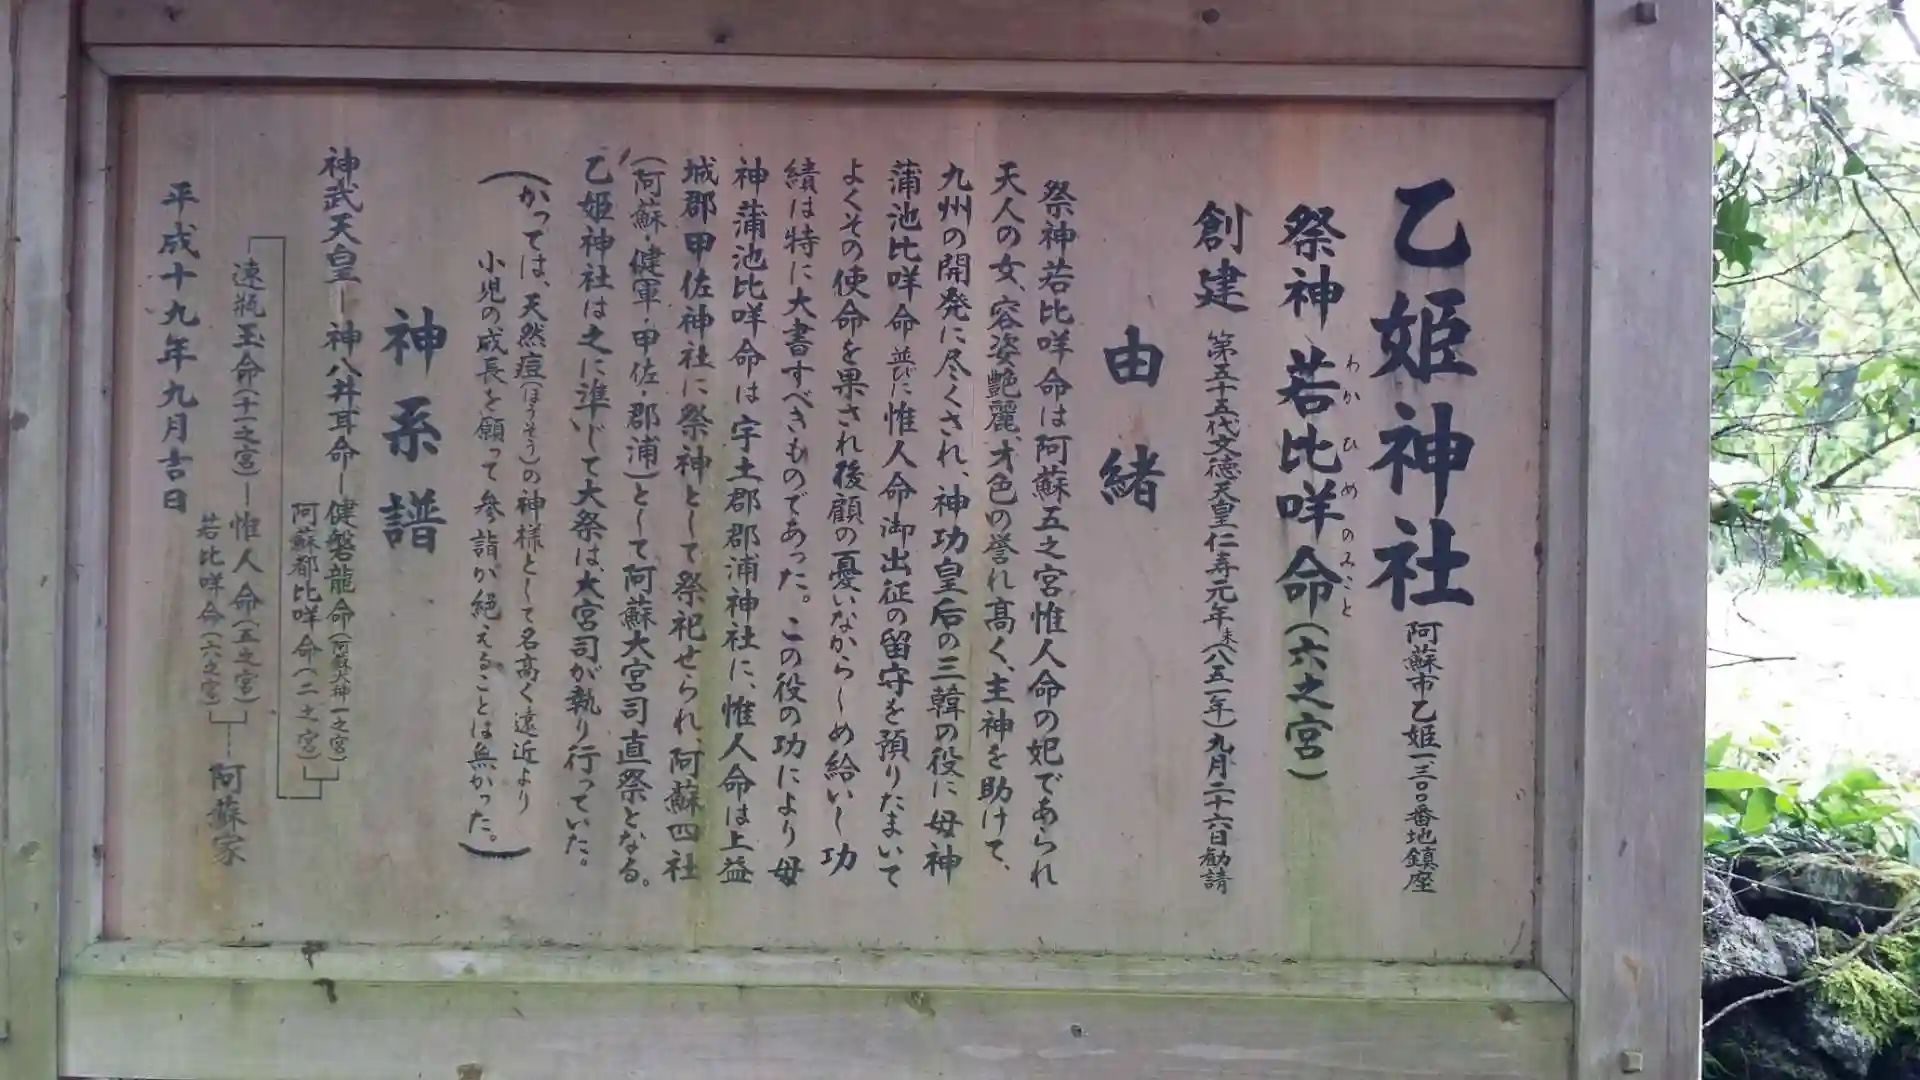 乙姫神社 阿蘇市乙姫一三〇〇番地鎮座
祭神 若比咩命(六之宮)
わかひめのみこと
創建 第五十五代文徳天皇仁寿元年末(八五一年)九月二十六日勧請
由緒
祭神若比咩命は阿蘇五之宮惟人命の妃であられ
天人の女、容姿艶麗、才色の誉れ高く、主神を助けて、
九州の開発に尽くされ、神功皇后の三韓の役に母神
蒲池比咩命並びに惟人命御出征の留守を預りたまいて
よくその使命を果され後顧の憂いなからしめ給いし功
績は特に大書すべきものであった。この役の功により母
神蒲池比咩命は宇土郡郡浦神社に、惟人命は上益
城郡甲佐神社に祭神として祭祀せられ、阿蘇四社
(阿蘇・健軍・甲佐・郡浦)として阿蘇大宮司直祭となる。
乙姫神社は之に準いじて大祭は、大宮司が執り行っていた。
(かっては、天然痘(ほうそう)の神様として名高く遠近より
小児の成長を願って参詣が絶えることは無かった。)
神系譜
神武天皇―神八井耳命―健磐龍命(阿蘇大神一之宮)
阿蘇都比咩命(二之宮)
速瓶玉命(十一之宮)―惟人命(五之宮)
若比咩命(六之宮)
阿蘇家
平成十九年九月吉日